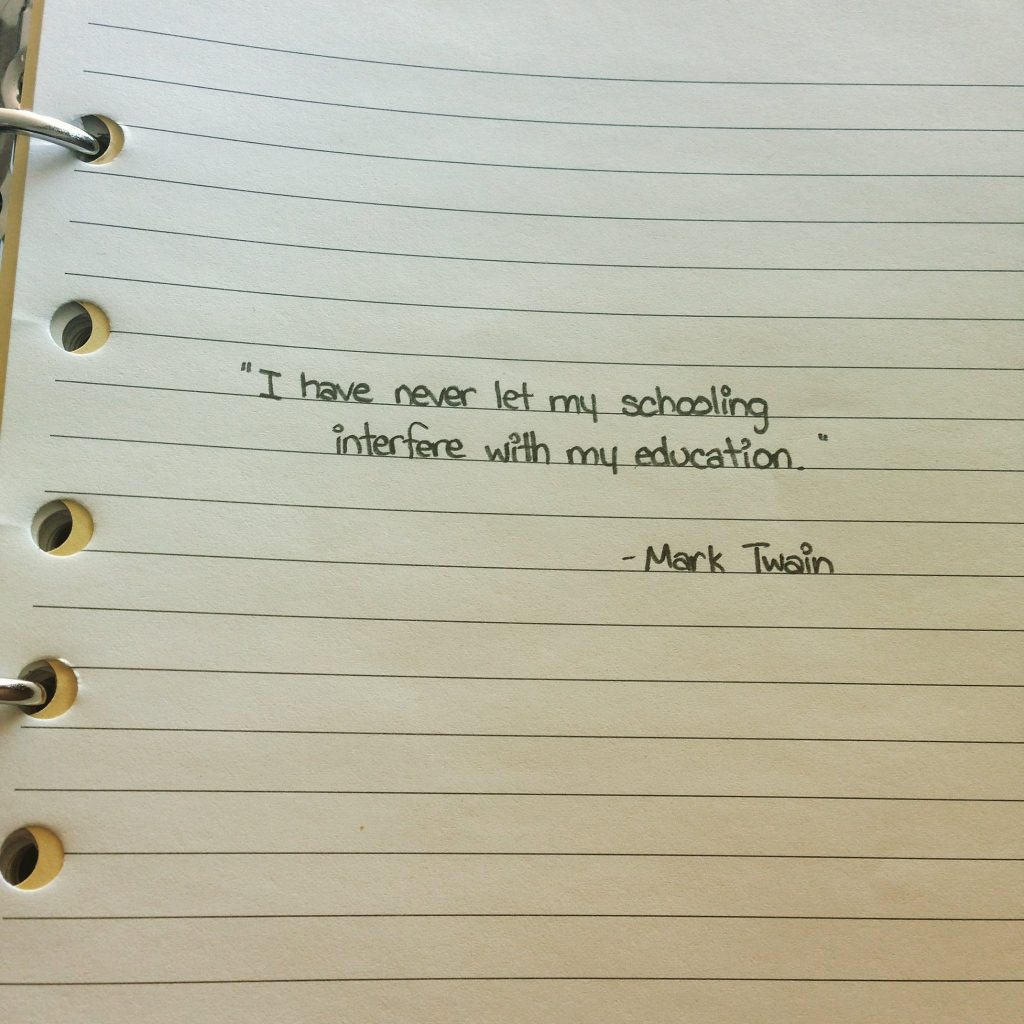 "I have never let my schooling
interfere with my education."
- Mark Twain